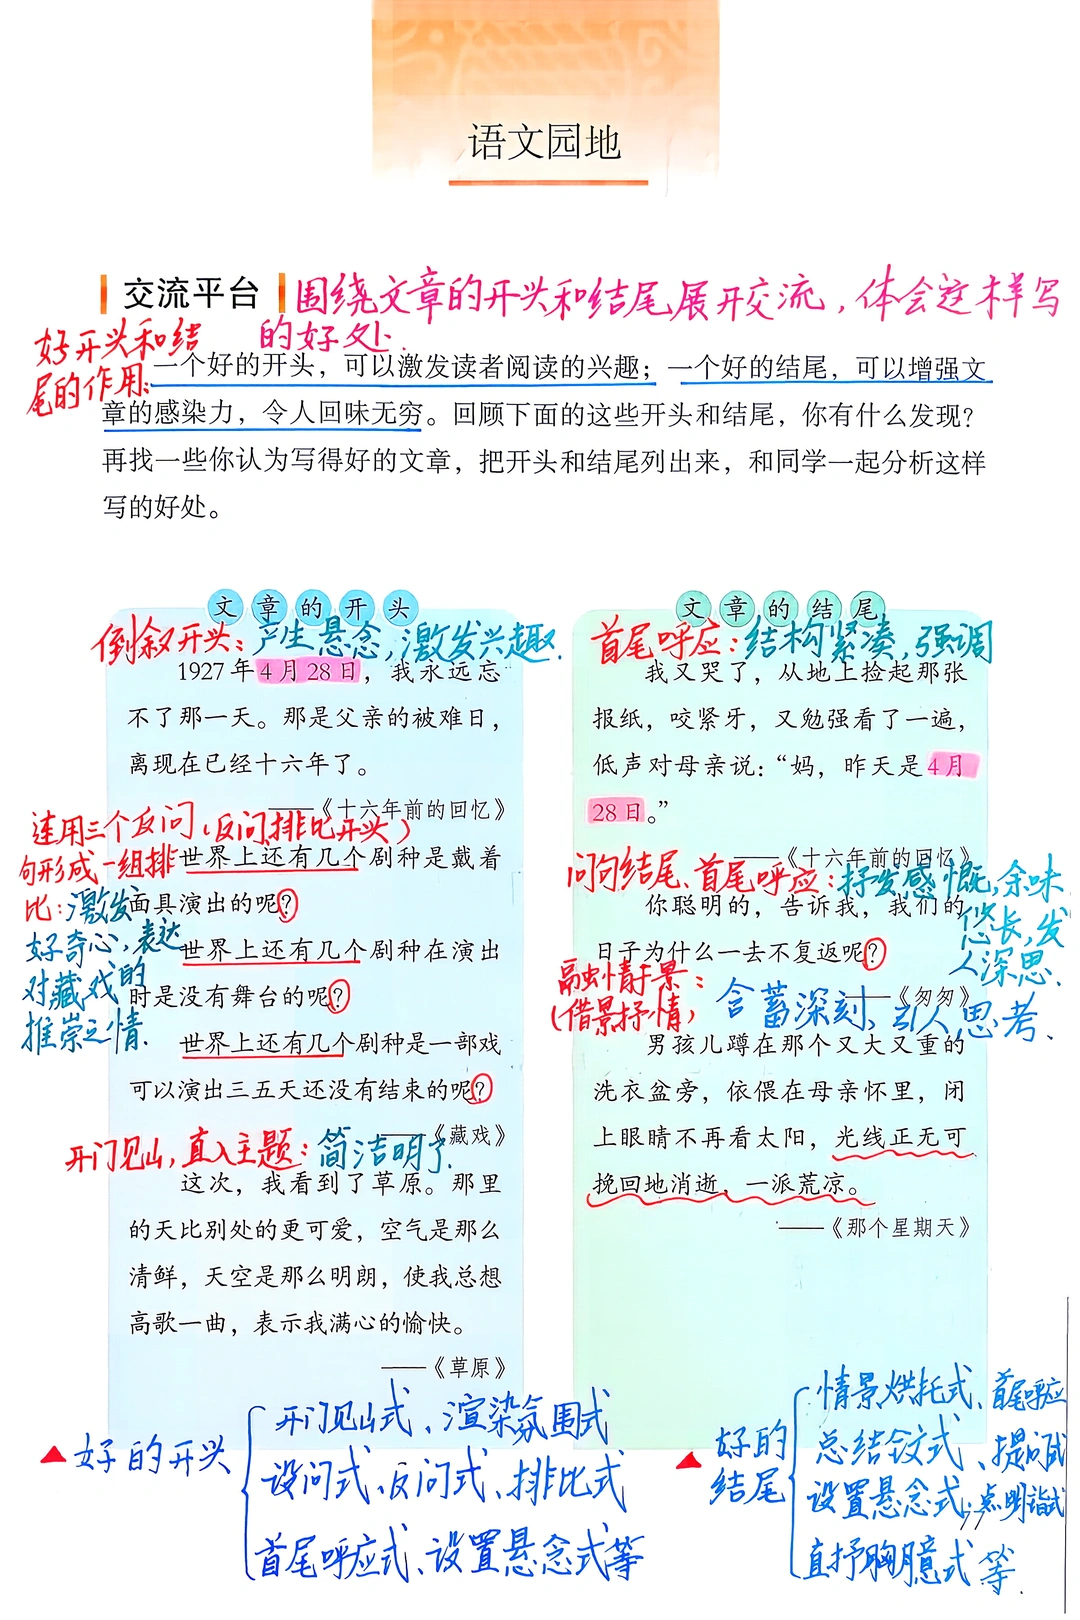 语文园地
交流平台
围绕文章的开头和结尾展开交流，体会这样写
的好处.
好开头和结
尾的作用:
一个好的开头，可以激发读者阅读的兴趣；一个好的结尾，可以增强文
章的感染力，令人回味无穷。回顾下面的这些开头和结尾，你有什么发现？
再找一些你认为写得好的文章，把开头和结尾列出来，和同学一起分析这样
写的好处。
文章的开头
倒叙开头：产生悬念，激发兴趣.
1927年4月28日，我永远忘
不了那一天。那是父亲的被难日，
离现在已经十六年了。
——《十六年前的回忆》
连用三个反问（反问、排比开头）
句形成一组排
比：激发
好奇心，表达
对藏戏的
推崇之情.
世界上还有几个剧种是戴着
面具演出的呢？
世界上还有几个剧种在演出
时是没有舞台的呢？
世界上还有几个剧种是一部戏
可以演出三五天还没有结束的呢？
——《藏戏》
开门见山，直入主题：简洁明了.
这次，我看到了草原。那里
的天比别处的更可爱，空气是那么
清鲜，天空是那么明朗，使我总想
高歌一曲，表示我满心的愉快。
——《草原》
文章的结尾
首尾呼应：结构紧凑，强调
我又哭了，从地上捡起那张
报纸，咬紧牙，又勉强看了一遍，
低声对母亲说：“妈，昨天是4月
28日。”
——《十六年前的回忆》
问句结尾、首尾呼应：抒发感慨，余味
悠长，发
人深思.
你聪明的，告诉我，我们的
日子为什么一去不复返呢？
——《匆匆》
融情于景：
（借景抒情）
含蓄深刻，引人思考.
男孩儿蹲在那个又大又重的
洗衣盆旁，依偎在母亲怀里，闭
上眼睛不再看太阳，光线正无可
挽回地消逝，一派荒凉。
——《那个星期天》
▲好的开头
开门见山式、渲染氛围式
设问式、反问式、排比式
首尾呼应式、设置悬念式等
▲好的
结尾
情景烘托式、首尾呼应
总结全文式、提问式
设置悬念式，点明主旨式
直抒胸臆式等.